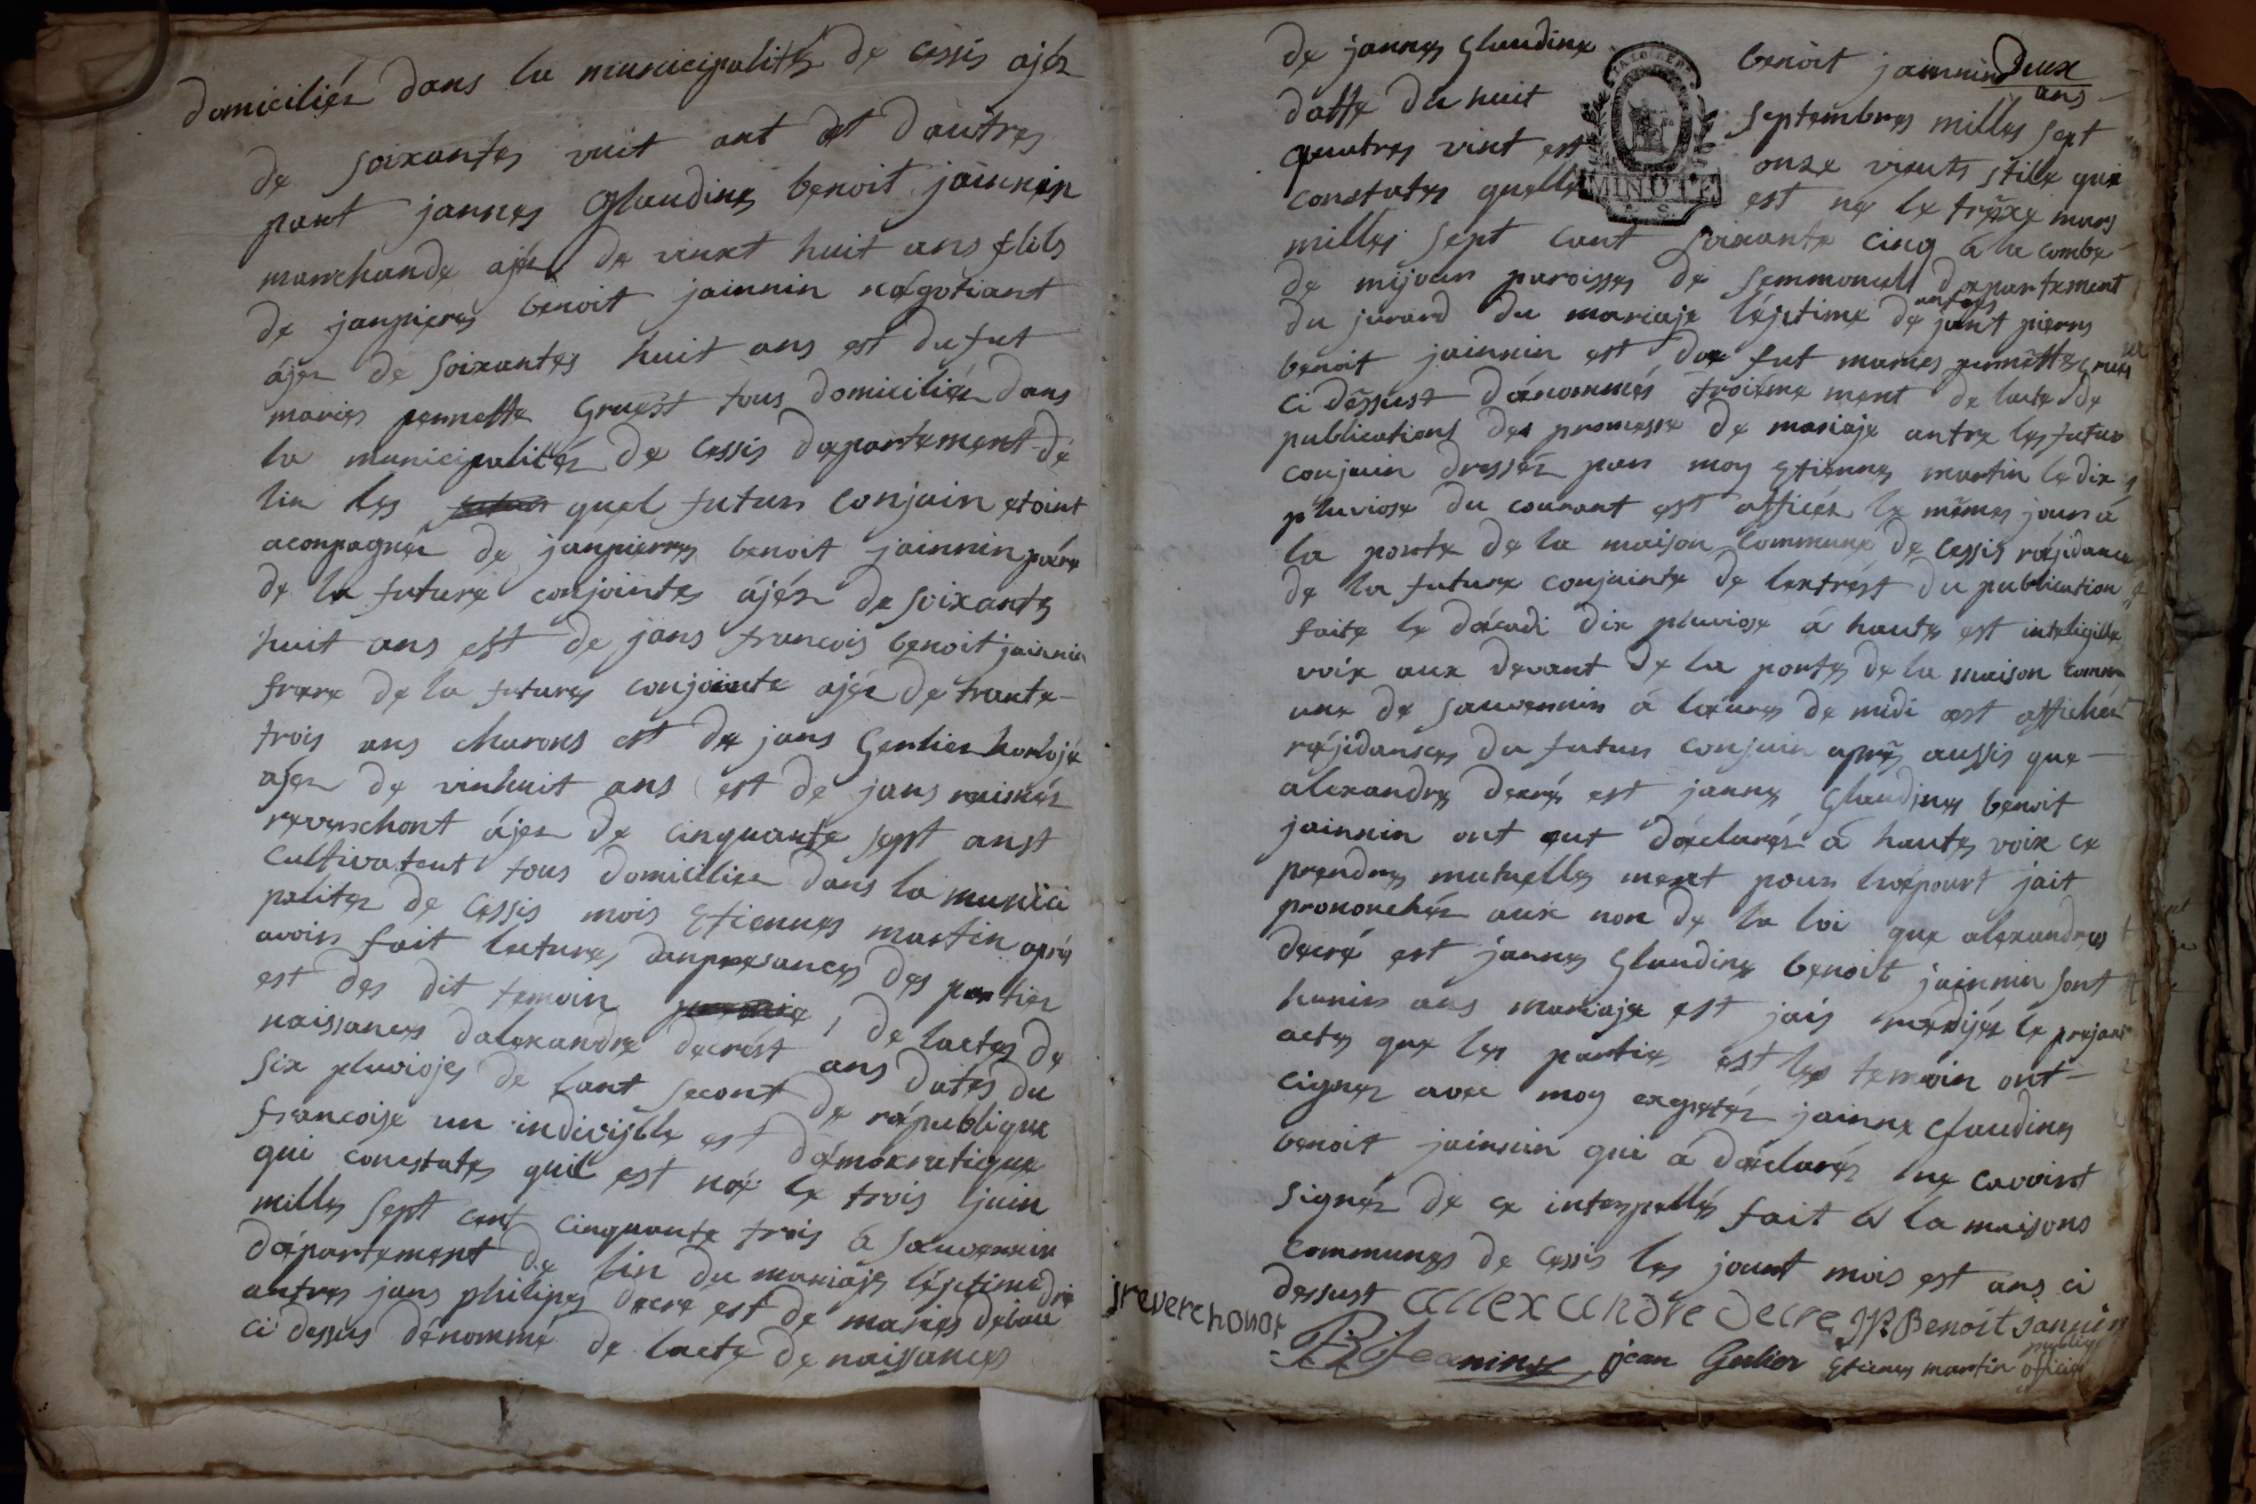 domiciliéz dans la municipalitéz de cessis ajéz
de soixantes vuit ant et dautres
part jannes Glaudines benoit jainnin
marchande ajéz de vinxt huit ans fills
de janpieres benoit jainnin négotiant
ájez de soixantes huit ans est du fut
maries pernette Gruést tous domiciliéz dans
la municipalitéz de cessis département de
lin les quel futurs conjoin etoint
aconpagnéz de janpierres benoit jainnin pére
de la future conjointes ájéz de soixantes
huit ans est de jans francois benoit jainnin
frere de la futures conjointe ajéz de trante
trois ans charons est de jans Gerlier horlojé
ájez de vinhuit ans est de jans reimés
reverchont ájez de cinquante sept anst
cultivateut tous domicilier dans la munici
palitez de Cessis mois Etiennes martin aprés
avoir fait lectures danpresances des partiez
est des dit temoin de lactes de
naissances dalexandre decrést ans dates du
six pluviojes de lant secont de républiques
francoise un indivisble est démokratique
qui constates quil est néé le trois juin
milles sept cent cinquante trois á sauvernin
département de lin du mariaje léjitime
antres jans philipes decre est de maries
ci dessus dénommé de lacte de naissances
de jannes Glaudine benoit jainnin deux
ans
datte du huit septembres milles sept
quatres vint est onze vieuts stille qui
constates quelle est né le treize mars
milles sept cant soixante cinq á la combe
de mijoux paroisses de semmoncel département
du jurard du mariaje léjitime de jant pierres
antres
benoit jainnin est de fut maries pernette Gruest
ci déssust dénommés troixime ment de lacte de
publications des promesse de mariaje antre les futur
conjuin dresséz par moy Etiennes martin le dix
pluviose du courant est afficéz le mêmes jour á
la porte de la maison commune de cessis réjidance
de la future conjointe de lextrést du publication
faite le décadi dix pluviose á hautes est inteligille
voix aux devant de la portes de la maison comm
une de sauvernin á leures de midi est affichéz
réjidansces du futurs conjuin aprés aussis que
alexandres decrés est jannes Glaudines benoit
jainnin ont eut déclarés á hautes voix ce
prendres mutuelles ment pour lwépourt jait
prononchéz aux non de la loi que alexandres
decré est jannes Glaudine benoit jainnin sont
hunis ans mariaje est jais rédijéz le prejant
actes que les parties est les temoin ont
cignez avec moy exeptéz jainne Claudines
benoit jainnin qui á déclaréz ne cavoirt
signéz de ce interpellés fait á la maisons
communes de cessis les jourt mois est ans ci
dessust
jreverchonot allexandre decre JP Benoit janin
Jeannin jean Gerlier Etienes martin oficie
publiq